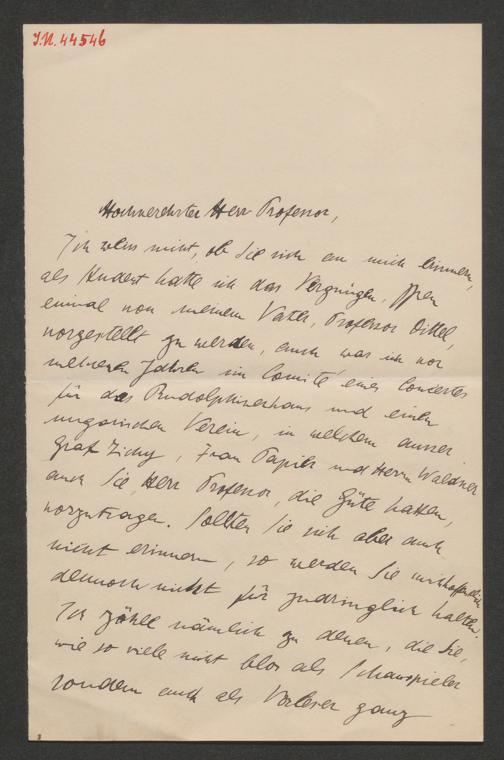 J.N. 44546
Hochverehrter Herr Professor,
Ich weiss nicht, ob Sie sich an mich erinnern,
als Student hatte ich das Vergnügen, Ihnen
einmal von meinem Vater, Professor Dittel,
vorgestellt zu werden, auch war ich vor
mehreren Jahren im Comité eines Concertes
für das Rudolphinerhaus und einen
ungarischen Verein, in welchem ausser
Graf Zichy, Frau Papier und Herrn Waldner
auch Sie, Herr Professor, die Güte hatten,
vorzutragen. Sollten Sie sich aber auch
nicht erinnern, so werden Sie mich hoffentlich
dennoch nicht für zudringlich halten.
Ich zähle nämlich zu denen, die Sie,
wie so viele nicht blos als Schauspieler
sondern auch als Vorleser ganz